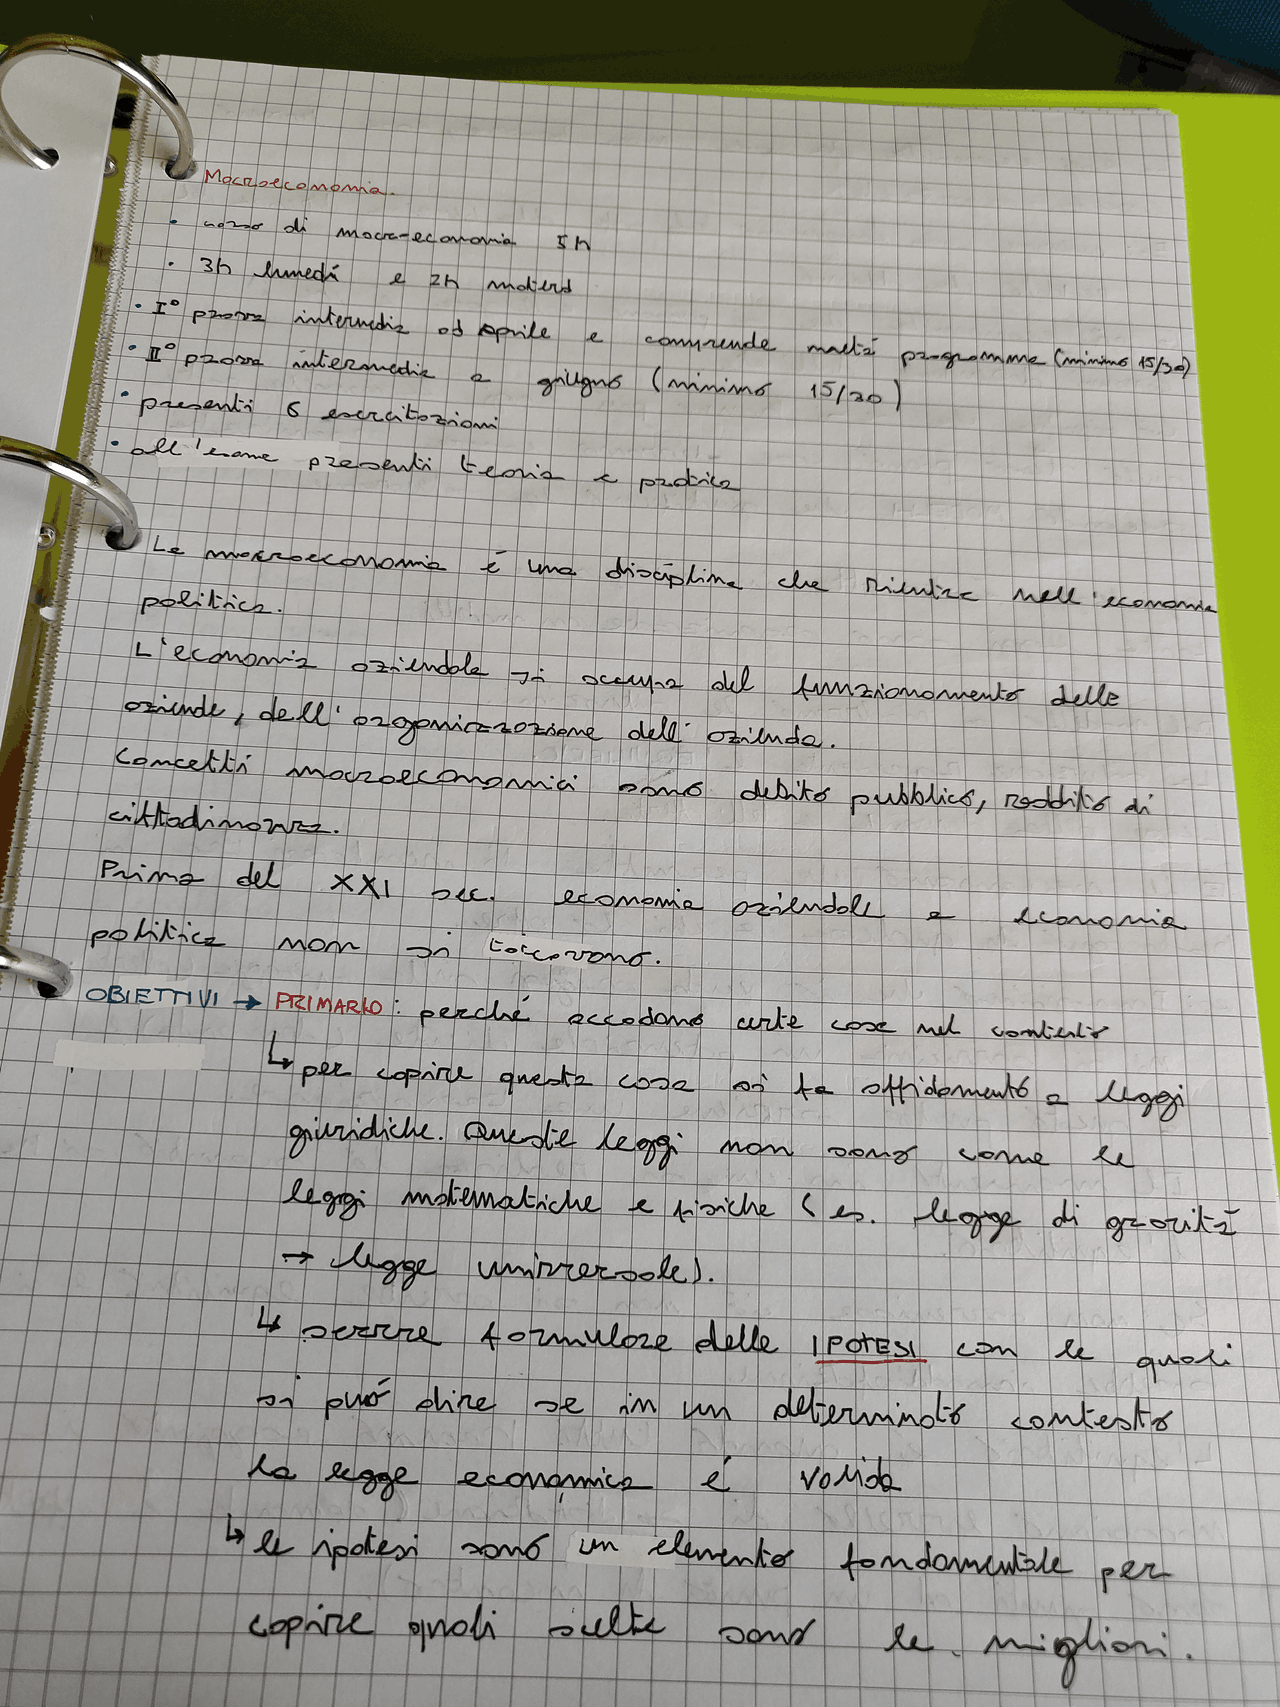 Macroeconomia.
• corso di macro-economia 5h
• 3h lunedì e 2h martedì
• I° prova intermedia ad Aprile e comprende metà programma (minimo 15/30)
• II° prova intermedia a giugno (minimo 15/30)
• presenti 6 esercitazioni
• all'esame presenti teoria e pratica
La macroeconomia è una disciplina che rientra nell'economia
politica.
L'economia aziendale si occupa del funzionamento delle
aziende, dell'organizzazione dell'azienda.
Concetti macroeconomici sono debito pubblico, reddito di
cittadinanza.
Prima del XXI sec. economia aziendale e economia
politica non si toccavano.
OBIETTIVI → PRIMARIO: perché accadano certe cose nel contesto
↳ per capire questa cosa si fa affidamento a leggi
giuridiche. Queste leggi non sono come le
leggi matematiche e fisiche (es. legge di gravità
→ legge universale).
↳ serve formulare delle IPOTESI con le quali
si può dire se in un determinato contesto
la legge economica é valida
↳ le ipotesi sono un elemento fondamentale per
capire quali scelte sono le migliori.